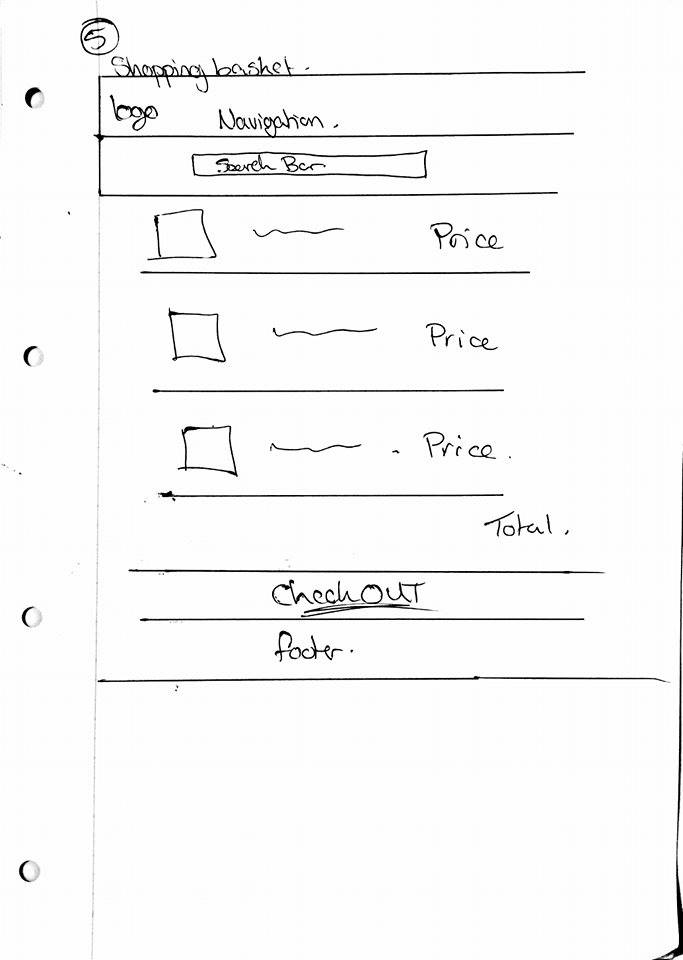 5
Shopping basket.
logo Navigation.
Search Bar
Price
Price
Price.
Total.
CheckOUT
footer.